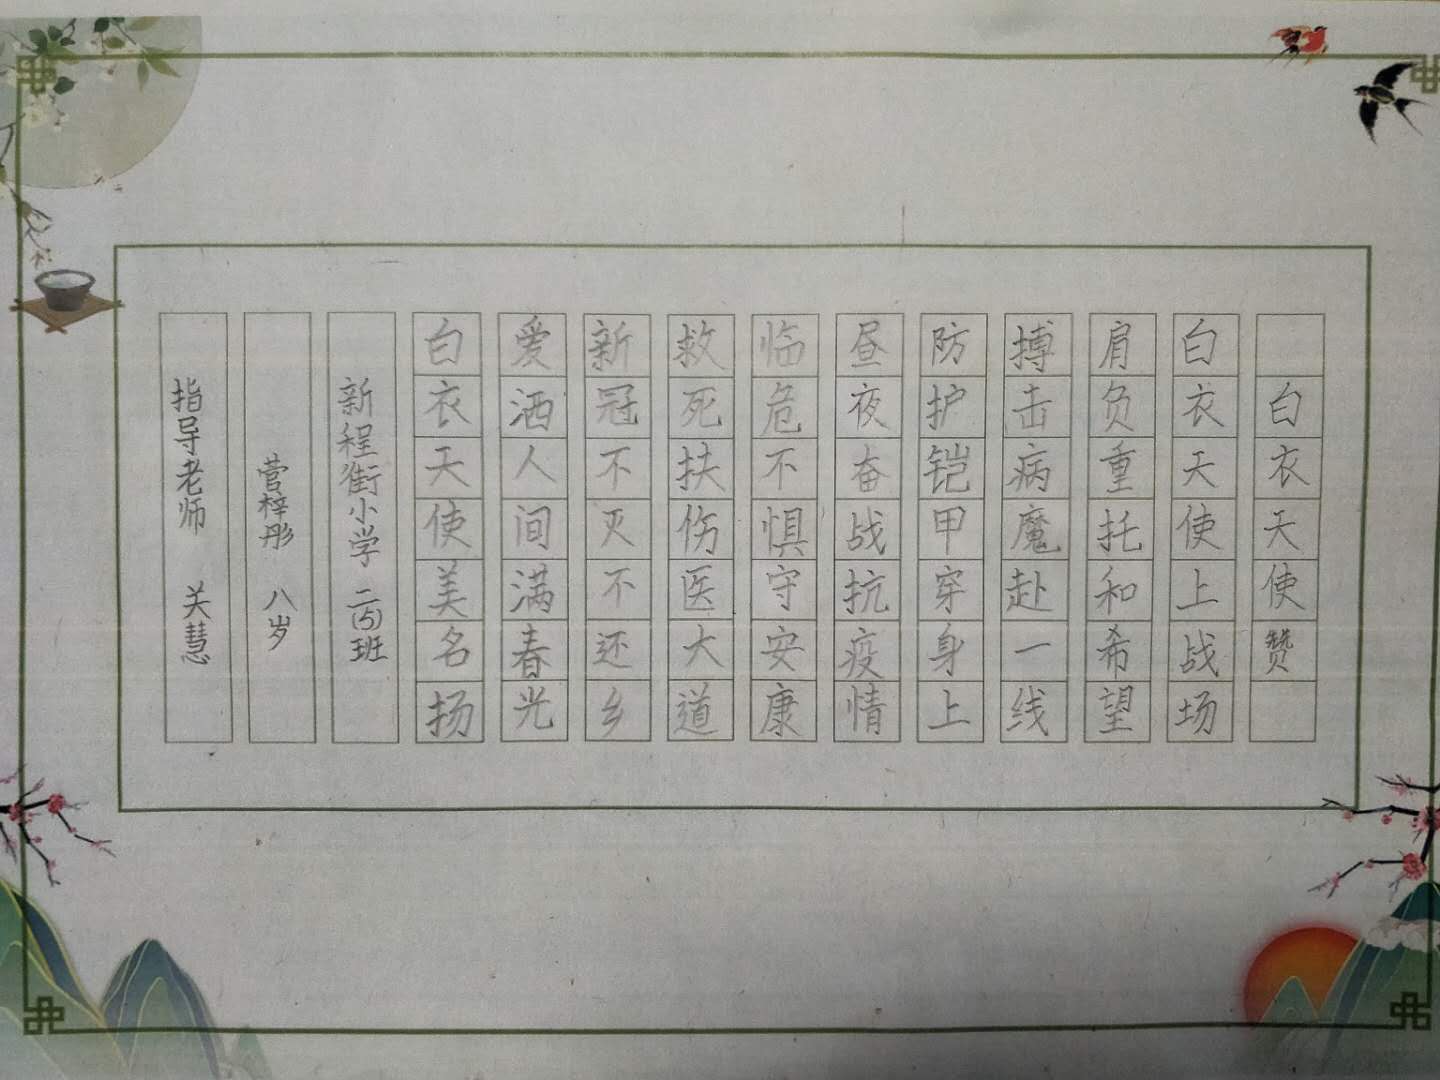 白衣天使赞
白衣天使上战场
肩负重托和希望
搏击病魔赴一线
防护铠甲穿身上
昼夜奋战抗疫情
临危不惧守安康
救死扶伤医大道
新冠不灭不还乡
爱洒人间满春光
白衣天使美名扬
新程街小学 二(5)班
菅梓彤 八岁
指导老师 关慧